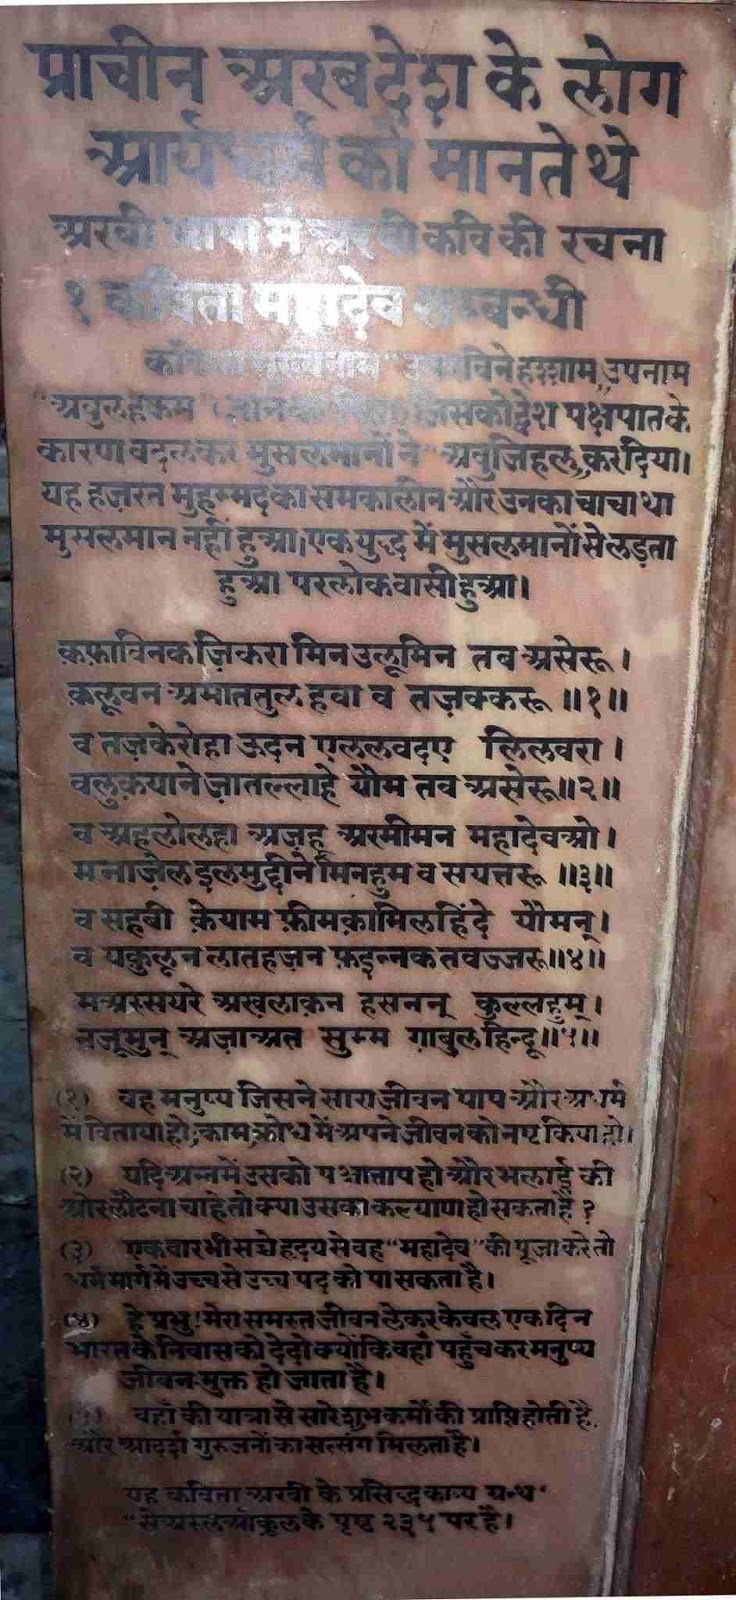 प्राचीन अरबदेश के लोग
आर्यधर्म को मानते थे
अरबी भाषा में अरबी कवि की रचना
१ कविता महादेव सम्बन्धी
उमरबिने हश्शाम, उपनाम
"अबुलहकम" (ज्ञान का पिता) जिसको द्वेश पक्षपात के
कारण बदलकर मुसलमानों ने "अबुजिहल" कर दिया।
यह हज़रत मुहम्मद का समकालीन और उनका चाचा था
मुसलमान नहीं हुआ। एक युद्ध में मुसलमानों से लड़ता
हुआ परलोकवासी हुआ।
क़फ़ाविनक ज़िकरा मिन उलूमिन तब असेरू।
क़लूवन अमाततुल हवा व तज़क्करू॥१॥
व तज़केरोहा ऊदन एललवदए लिलवरा।
वलुकयाने ज़ातल्लाहे यौम तब असेरू॥२॥
व अहलोलहा अज़हू अरमीमन महादेवओ।
मनाज़ेल इलमुद्दीने मिनहुम व सयत्तरू॥३॥
व सहबी क़ेयाम फ़ीमक़ामिलहिंदे यौमन्।
व यकुलून लातहज़न फ़इन्नक तवज्जरू॥४॥
मअस्सयरे अखलाक़न हसनन् कुल्लहुम्।
नजूमुन् अज़ाअत सुम्म ग़ाबुलहिन्दू॥५॥
(१) वह मनुष्य जिसने सारा जीवन पाप और अधर्म
में बिताया हो, काम क्रोध में अपने जीवन को नष्ट किया हो।
(२) यदि अन्त में उसको पश्चाताप हो और भलाई की
ओर लौटना चाहे तो क्या उसका कल्याण हो सकता है?
(३) एक बार भी सच्चे हृदय से वह "महादेव" की पूजा करे तो
धर्म मार्ग में उच्च से उच्च पद को पा सकता है।
(४) हे प्रभु! मेरा समस्त जीवन लेकर केवल एक दिन
भारत के निवास को दे दो क्योंकि वहाँ पहुँचकर मनुष्य
जीवन मुक्त हो जाता है।
(५) वहाँ की यात्रा से सारे शुभ कर्मों की प्राप्ति होती है,
और आदर्श गुरुजनों का सत्संग मिलता है।
यह कविता अरबी के प्रसिद्ध काव्य ग्रन्थ
"सेअरुलओकुल के पृष्ठ २३५ पर है।